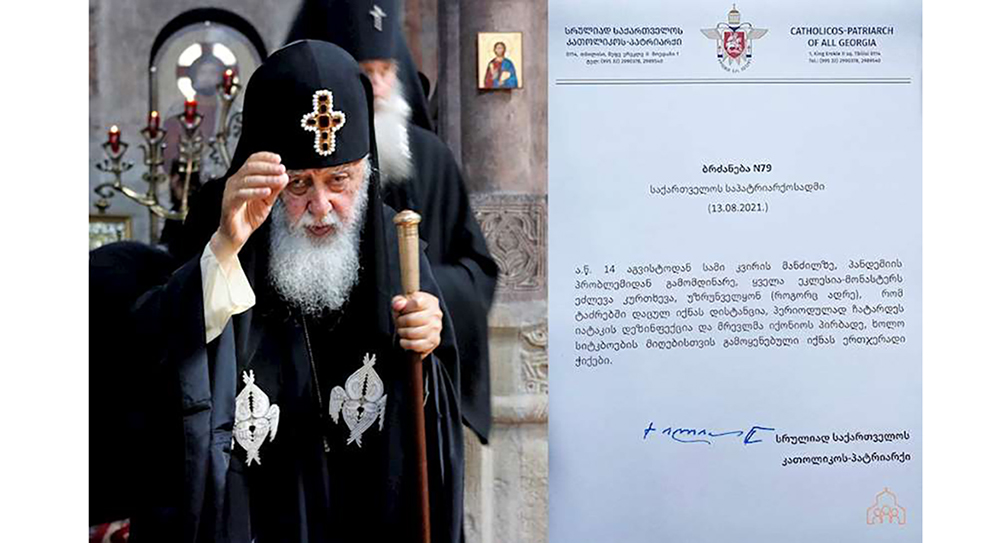 სრულიად საქართველოს
კათოლიკოს-პატრიარქი
CATHOLICOS-PATRIARCH
OF ALL GEORGIA
1, King Erekle II sq, Tbilisi 0114
Tel.: (995 32) 2990378, 2989540
ბრძანება N79
საქართველოს საპატრიარქოსადმი
(13.08.2021.)
ა.წ. 14 აგვისტოდან სამი კვირის მანძილზე, პანდემიის
პრობლემიდან გამომდინარე, ყველა ეკლესია-მონასტერს
ეძლევა კურთხევა, უზრუნველყონ (როგორც ადრე), რომ
ტაძრებში დაცულ იქნას დისტანცია, პერიოდულად ჩატარდეს
იატაკის დეზინფექცია და მრევლმა იქონიოს პირბადე, ხოლო
სიტკბოების მიღებისთვის გამოყენებული იქნას ერთჯერადი
ჭიქები.
სრულიად საქართველოს
კათოლიკოს-პატრიარქი